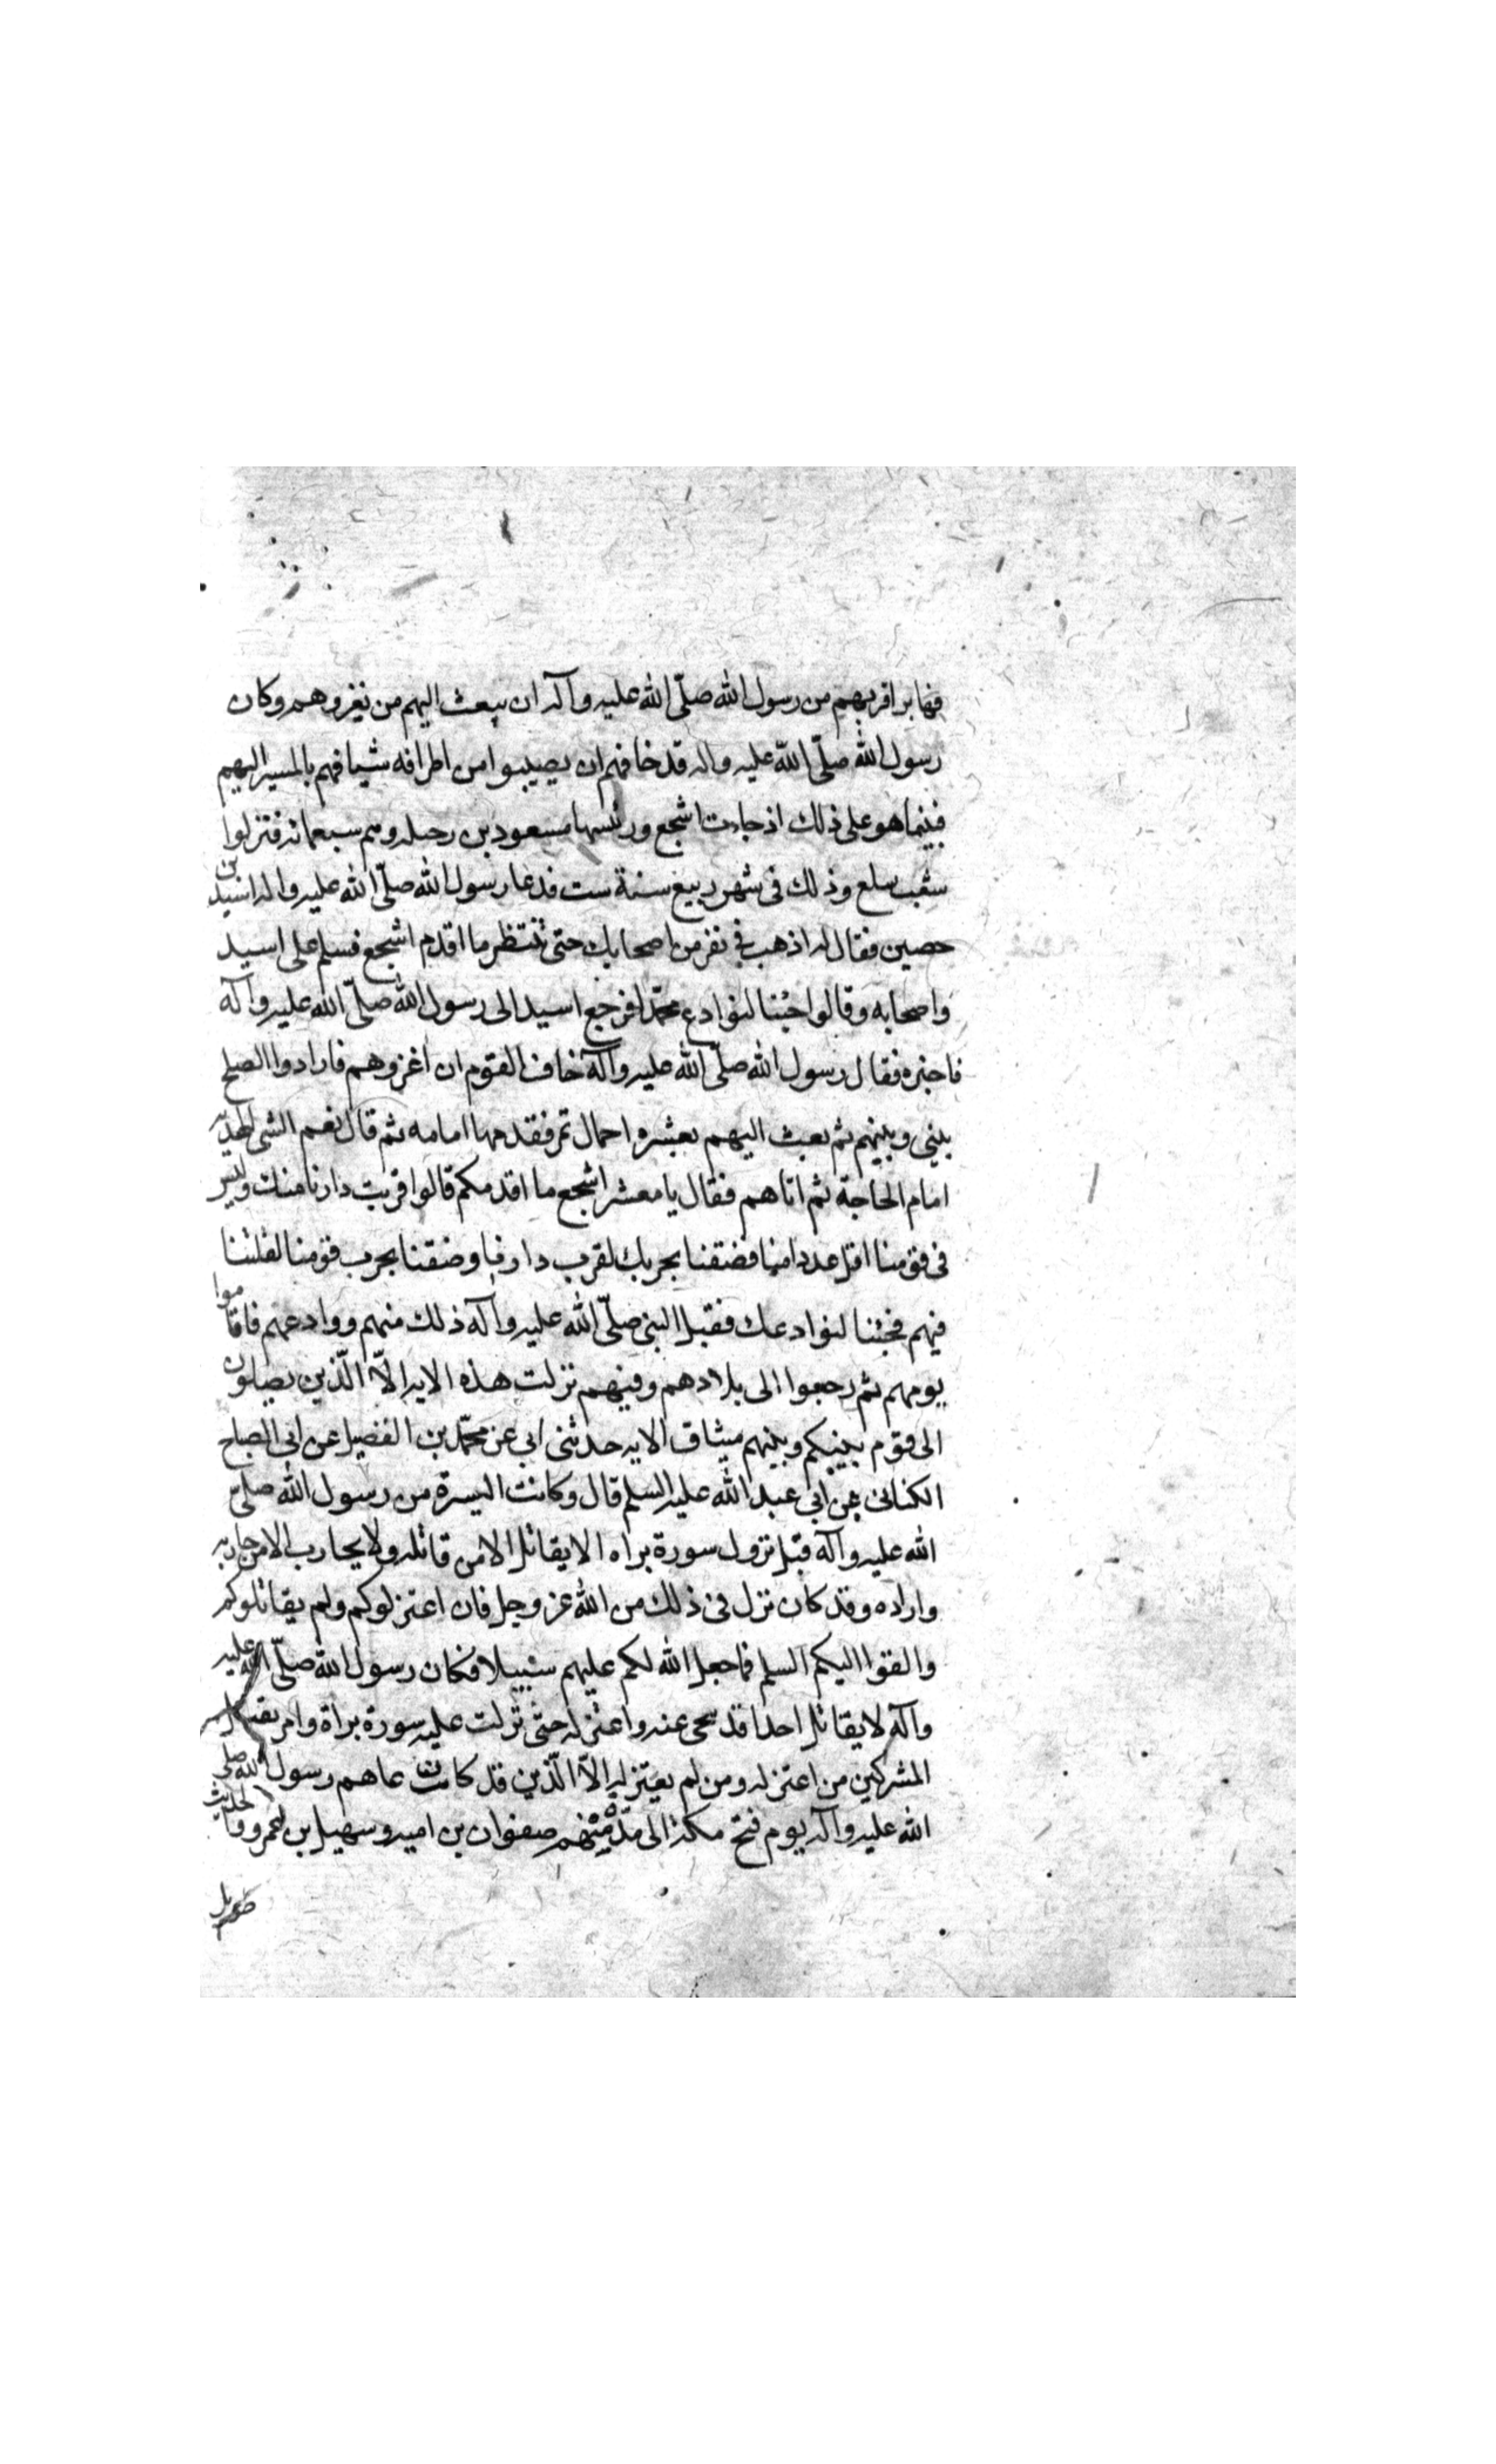 فهابوا قربهم من رسول الله صلّى الله عليه وآله ان يبعث اليهم من يغزوهم وكان
رسول الله صلّى الله عليه واله قد خافهم ان يصيبوا من اطرافه شيئا فهم بالمسير اليهم
فبينما هو على ذلك اذ جاءت اشجع ورئيسها مسعود بن رحيله وهم سبعمائه فنزلوا
شعب سلع وذلك فى شهر ربيع سنة ست فدعا رسول الله صلّى الله عليه واله اسيد بن
حصين فقال له اذهب فى نفر من اصحابك حتى تنتظر ما اقدم اشجع فسلم على اسيد
واصحابه وقالوا جئنا لنوادع محمّدا فرجع اسيد الى رسول الله صلّى الله عليه وآله
فاخبره فقال رسول الله صلّى الله عليه وآله خاف القوم ان اغزوهم فارادوا الصلح
بينى وبينهم ثم بعث اليهم بعشره احمال تمر فقدمها امامه ثم قال نعم الشى الهديّه
امام الحاجة ثم اتاهم فقال يا معشر اشجع ما اقدمكم قالوا قربت دارنا منك وليس
فى قومنا اقل عددا منا فضقنا بحربك لقرب دارنا وضقنا بحرب قومنا لقلتنا
فيهم فجئنا لنوادعك فقبل النبى صلّى الله عليه وآله ذلك منهم ووادعهم فاقاموا
يومهم ثم رجعوا الى بلادهم وفيهم نزلت هذه الايه الّا الّذين يصلون
الى قوم بينكم وبينهم ميثاق الايه حدثنى ابى عن محمّد بن الفضيل عن ابى الصباح
الكنانى عن ابى عبد الله عليه السلم قال وكانت السيرة من رسول الله صلى
الله عليه وآله قبل نزول سورة براه الا يقاتل الا من قاتله ولا يحارب الا من حاربه
واراده وقد كان نزل فى ذلك من الله عز وجل فان اعتزلوكم ولم يقاتلوكم
والقوا اليكم السلم فما جعل الله لكم عليهم سبيلا فكان رسول الله صلّى الله عليه
وآله لا يقاتل احدا قد تنحى عنه واعتزله حتى نزلت عليه سورة براة وامر بقتل
المشركين من اعتزله ومن لم يعتزله الّا الّذين قد كانت عاهدهم رسول الله صلى
الله عليه وآله يوم فتح مكة الى مدّة منهم صفوان بن اميه وسهيل بن عمرو وقا الحديث
طويل